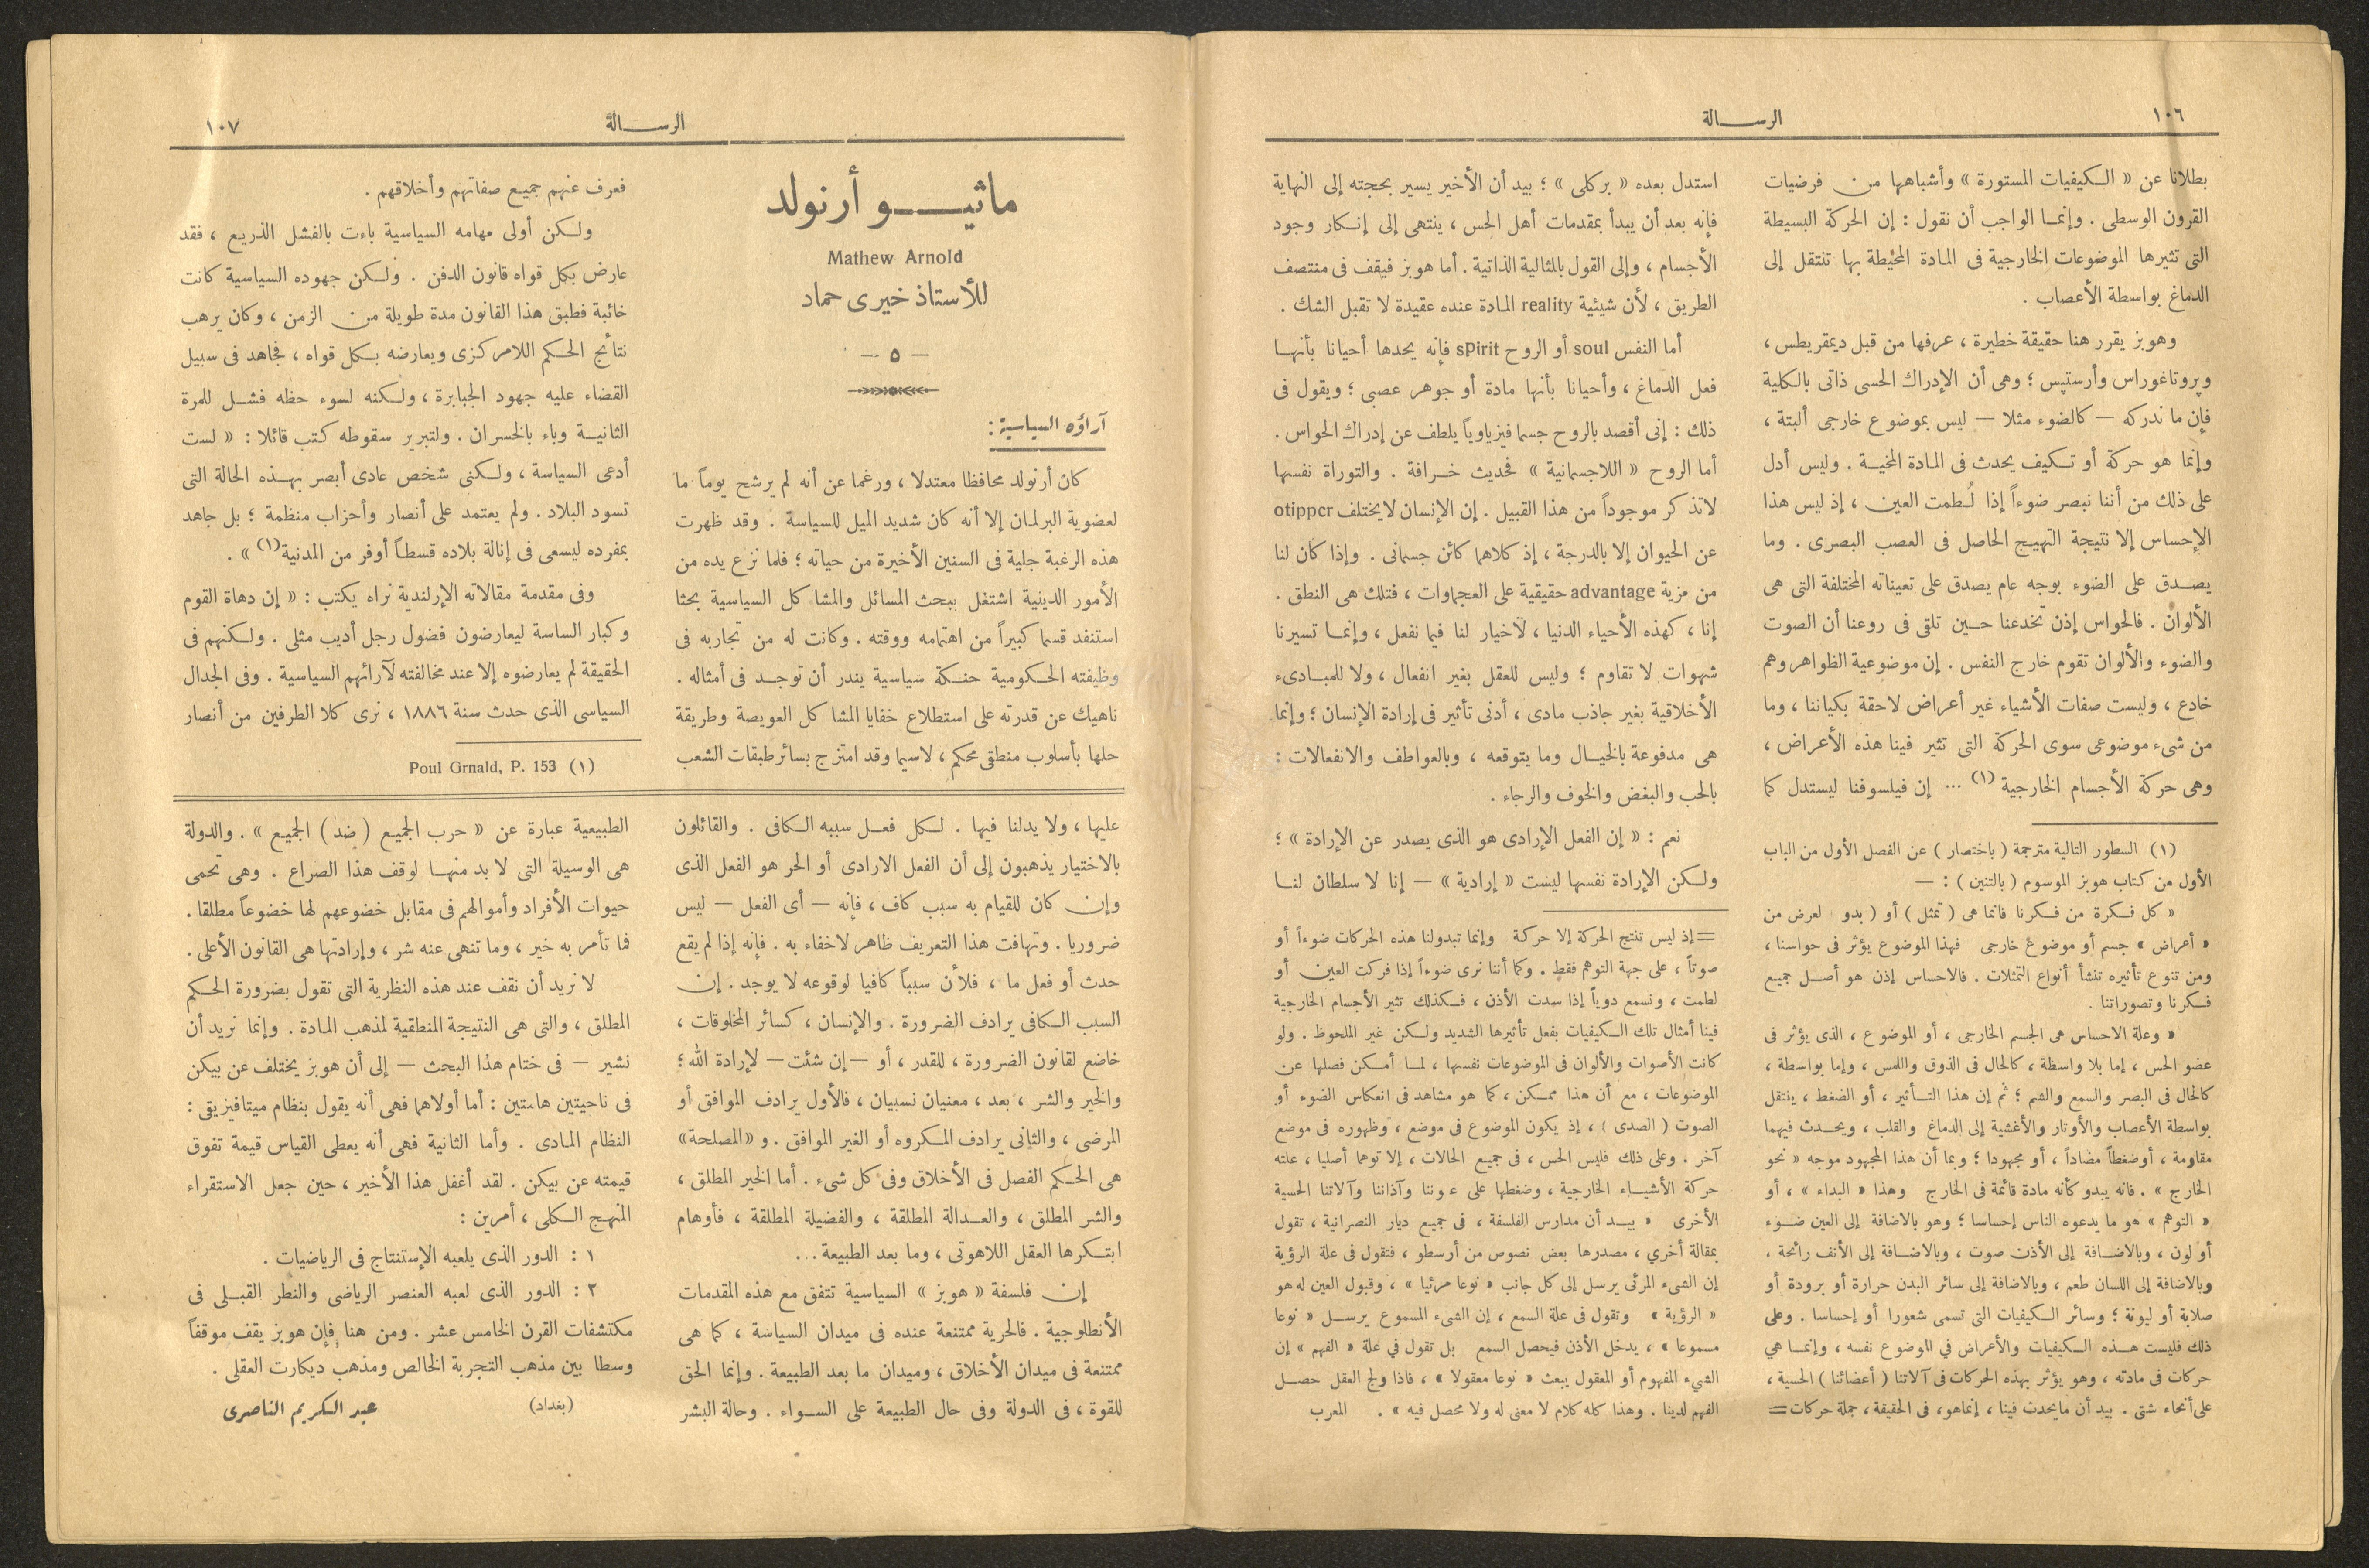 ١٠٦
الرســالة
بطلانا عن « الكيفيات المستورة » وأشباهها من فرضيات
القرون الوسطى . وإنما الواجب أن نقول : إن الحركة البسيطة
التى تثيرها الموضوعات الخارجية فى المادة المحيطة بها تنتقل إلى
الدماغ بواسطة الأعصاب .
وهوبز يقرر هنا حقيقة خطيرة ، عرفها من قبل ديمقريطس ،
وبروتاغوراس وأرستيبس ؛ وهى أن الإدراك الحسى ذاتى بالكلية
فإن ما ندركه — كالضوء مثلا — ليس بموضوع خارجى ألبتة ،
وإنما هو حركة أو تكيف يحدث فى المادة المخية . وليس أدل
على ذلك من أننا نبصر ضوءاً إذا لُطمت العين ، إذ ليس هذا
الإحساس إلا نتيجة التهيج الحاصل فى العصب البصرى . وما
يصدق على الضوء بوجه عام يصدق على تعيناته المختلفة التى هى
الألوان . فالحواس إذن تخدعنا حين تلقى فى روعنا أن الصوت
والضوء والألوان تقوم خارج النفس . إن موضوعية الظواهر وهم
خادع ، وليست صفات الأشياء غير أعراض لاحقة بكياننا ، وما
من شىء موضوعى سوى الحركة التى تثير فينا هذه الأعراض ،
وهى حركة الأجسام الخارجية (١) ... إن فيلسوفنا ليستدل كما
(١) السطور التالية مترجمة ( باختصار ) عن الفصل الأول من الباب
الأول من كتاب هوبز الموسوم ( بالتنين ) : —
« كل فكرة من فكرنا فانما هى ( تمثل ) أو ( بدو لعرض من
« أعراض » جسم أو موضوع خارجى فهذا الموضوع يؤثر فى حواسنا ،
ومن تنوع تأثيره تنشأ أنواع التمثلات . فالاحساس إذن هو أصل جميع
فكرنا وتصوراتنا .
« وعلة الاحساس هى الجسم الخارجى ، أو الموضوع ، الذى يؤثر فى
عضو الحس ، إما بلا واسطة ، كالحال فى الذوق واللمس ، وإما بواسطة ،
كالحال فى البصر والسمع والشم ؛ ثم إن هذا التأثير ، أو الضغط ، ينتقل
بواسطة الأعصاب والأوتار والأغشية إلى الدماغ والقلب ، ويحدث فيهما
مقاومة ، أوضغطاً مضاداً ، أو مجهودا ؛ وبما أن هذا المجهود موجه « نحو
الخارج » . فانه يبدو كأنه مادة قائمة فى الخارج وهذا « البداء » ، أو
« التوهم » هو ما يدعوه الناس إحساسا ؛ وهو بالاضافة إلى العين ضوء
أو لون ، وبالاضافة إلى الأذن صوت ، وبالاضافة إلى الأنف رائحة ،
وبالاضافة إلى اللسان طعم ، وبالاضافة إلى سائر البدن حرارة أو برودة أو
صلابة أو ليونة ؛ وسائر الكيفيات التى تسمى شعورا أو إحساسا . وعلى
ذلك فليست هذه الكيفيات والأعراض في الموضوع نفسه ، وإنما هي
حركات فى مادته ، وهو يؤثر بهذه الحركات فى آلاتنا ( أعضائنا ) الحسية ،
على أنحاء شتى . بيد أن مايحدث فينا ، إنماهو، فى الحقيقة، جملة حركات=
استدل بعده « بركلى » ؛ بيد أن الأخير يسير بحجته إلى النهاية
فإنه بعد أن يبدأ بمقدمات أهل الحس ، ينتهى إلى إنكار وجود
الأجسام ، وإلى القول بالمثالية الذاتية . أما هوبز فيقف فى منتصف
الطريق ، لأن شيئية reality المادة عنده عقيدة لا تقبل الشك .
أما النفس soul أو الروح spirit فإنه يحدها أحيانا بأنها
فعل الدماغ ، وأحيانا بأنها مادة أو جوهر عصبى ؛ ويقول فى
ذلك : إنى أقصد بالروح جسما فيزياوياً يلطف عن إدراك الحواس .
أما الروح « اللاجسمانية » فحديث خرافة . والتوراة نفسها
لاتذكر موجوداً من هذا القبيل . إن الإنسان لايختلف otippcr
عن الحيوان إلا بالدرجة ، إذ كلاهما كائن جسمانى . وإذا كان لنا
من مزية advantage حقيقية على العجماوات ، فتلك هى النطق .
إنا ، كهذه الأحياء الدنيا ، لاخيار لنا فيما نفعل ، وإنما تسيرنا
شهوات لا تقاوم ؛ وليس للعقل بغير انفعال ، ولا للمبادىء
الأخلاقية بغير جاذب مادى ، أدنى تأثير فى إرادة الإنسان ؛ وإنما
هى مدفوعة بالخيال وما يتوقعه ، وبالعواطف والانفعالات :
بالحب والبغض والخوف والرجاء .
نعم : « إن الفعل الإرادى هو الذى يصدر عن الإرادة » ؛
ولكن الإرادة نفسها ليست « إرادية » — إنا لا سلطان لنا
= إذ ليس تنتج الحركة إلا حركة وإنما تبدولنا هذه الحركات ضوءاً أو
صوتاً ، على جهة التوهم فقط . وكما أننا نرى ضوءاً إذا فركت العين أو
لطمت ، ونسمع دوياً إذا سدت الأذن ، فكذلك تثير الأجسام الخارجية
فينا أمثال تلك الكيفيات بفعل تأثيرها الشديد ولكن غير الملحوظ . ولو
كانت الأصوات والألوان فى الموضوعات نفسها ، لما أمكن فصلها عن
الموضوعات ، مع أن هذا ممكن ، كما هو مشاهد فى انعكاس الضوء أو
الصوت ( الصدى ) ، إذ يكون الموضوع فى موضع ، وظهوره فى موضع
آخر . وعلى ذلك فليس الحس ، فى جميع الحالات ، إلا توهما أصليا ، علته
حركة الأشياء الخارجية ، وضغطها على عوننا وآذاننا وآلاتنا الحسية
الأخرى « بيد أن مدارس الفلسفة ، فى جميع ديار النصرانية ، تقول
بمقالة أخري ، مصدرها بعض نصوص من أرسطو ، فتقول فى علة الرؤية
إن الشىء المرئى يرسل إلى كل جانب « نوعا مرئيا » ، وقبول العين له هو
« الرؤية » وتقول فى علة السمع ، إن الشىء المسموع يرسل « نوعا
مسموعا » ، يدخل الأذن فيحصل السمع بل تقول في علة « الفهم » إن
الشيء المفهوم أو المعقول يبعث « نوعا معقولا » ، فاذا ولج العقل حصل
الفهم لدينا . وهذا كله كلام لا معنى له ولا محصل فيه » . المعرب
١٠٧
الرســالة
ماثيــو أرنولد
Mathew Arnold
للأستاذ خيرى حماد
— ٥ —
آراؤه السياسية :
كان أرنولد محافظا معتدلا ، ورغما عن أنه لم يرشح يوماً ما
لعضوية البرلمان إلا أنه كان شديد الميل للسياسة . وقد ظهرت
هذه الرغبة جلية فى السنين الأخيرة من حياته ؛ فلما نزع يده من
الأمور الدينية اشتغل ببحث المسائل والمشاكل السياسية بحثا
استنفد قسما كبيراً من اهتمامه ووقته . وكانت له من تجاربه فى
وظيفته الحكومية حنكة سياسية يندر أن توجد فى أمثاله .
ناهيك عن قدرته على استطلاع خفايا المشاكل العويصة وطريقة
حلها بأسلوب منطقى محكم ، لاسيما وقد امتزج بسائر طبقات الشعب
فعرف عنهم جميع صفاتهم وأخلاقهم .
ولكن أولى مهامه السياسية باءت بالفشل الذريع ، فقد
عارض بكل قواه قانون الدفن . ولكن جهوده السياسية كانت
خائبة فطبق هذا القانون مدة طويلة من الزمن ، وكان يرهب
نتائج الحكم اللامركزى ويعارضه بكل قواه ، فجاهد فى سبيل
القضاء عليه جهود الجبابرة ، ولكنه لسوء حظه فشل للمرة
الثانية وباء بالخسران . ولتبرير سقوطه كتب قائلا : « لست
أدعى السياسة ، ولكنى شخص عادى أبصر بهذه الحالة التى
تسود البلاد . ولم يعتمد على أنصار وأحزاب منظمة ؛ بل جاهد
بمفرده ليسعى فى إنالة بلاده قسطاً أوفر من المدنية (١) » .
وفى مقدمة مقالاته الإرلندية نراه يكتب : « إن دهاة القوم
وكبار الساسة ليعارضون فضول رجل أديب مثلى . ولكنهم فى
الحقيقة لم يعارضوه إلا عند مخالفته لآرائهم السياسية . وفى الجدال
السياسى الذى حدث سنة ١٨٨٦ ، نرى كلا الطرفين من أنصار
(١) Poul Grnald, P. 153
عليها ، ولا يدلنا فيها . لكل فعل سببه الكافى . والقائلون
بالاختيار يذهبون إلى أن الفعل الارادى أو الحر هو الفعل الذى
وإن كان للقيام به سبب كاف ، فإنه — أى الفعل — ليس
ضروريا . وتهافت هذا التعريف ظاهر لاخفاء به . فإنه إذا لم يقع
حدث أو فعل ما ، فلأن سبباً كافيا لوقوعه لا يوجد . إن
السبب الكافى يرادف الضرورة . والإنسان ، كسائر المخلوقات ،
خاضع لقانون الضرورة ، للقدر ، أو — إن شئت — لإرادة الله ؛
والخير والشر ، بعد ، معنيان نسبيان ، فالأول يرادف الموافق أو
المرضى ، والثانى يرادف المكروه أو الغير الموافق . و « المصلحة »
هى الحكم الفصل فى الأخلاق وفى كل شىء . أما الخير المطلق ،
والشر المطلق ، والعدالة المطلقة ، والفضيلة المطلقة ، فأوهام
ابتكرها العقل اللاهوتى ، وما بعد الطبيعة ...
إن فلسفة « هوبز » السياسية تتفق مع هذه المقدمات
الأنطلوجية . فالحرية ممتنعة عنده فى ميدان السياسة ، كما هى
ممتنعة فى ميدان الأخلاق ، وميدان ما بعد الطبيعة . وإنما الحق
للقوة ، فى الدولة وفى حال الطبيعة على السواء . وحالة البشر
الطبيعية عبارة عن « حرب الجميع ( ضد ) الجميع » . والدولة
هى الوسيلة التى لا بد منها لوقف هذا الصراع . وهى تحمى
حيوات الأفراد وأموالهم فى مقابل خضوعهم لها خضوعاً مطلقا .
فما تأمر به خير ، وما تنهى عنه شر ، وإرادتها هى القانون الأعلى .
لا نريد أن نقف عند هذه النظرية التى تقول بضرورة الحكم
المطلق ، والتى هى النتيجة المنطقية لمذهب المادة . وإنما نريد أن
نشير — فى ختام هذا البحث — إلى أن هوبز يختلف عن بيكن
فى ناحيتين هامتين : أما أولاهما فهى أنه يقول بنظام ميتافيزيقى :
النظام المادى . وأما الثانية فهى أنه يعطى القياس قيمة تفوق
قيمته عن بيكن . لقد أغفل هذا الأخير ، حين جعل الاستقراء
المنهج الكلى ، أمرين :
١ : الدور الذى يلعبه الإستنتاج فى الرياضيات .
٢ : الدور الذى لعبه العنصر الرياضى والنظر القبلى فى
مكتشفات القرن الخامس عشر . ومن هنا فإن هوبز يقف موقفاً
وسطا بين مذهب التجربة الخالص ومذهب ديكارت العقلى .
(بغداد) عبد الكريم الناصرى